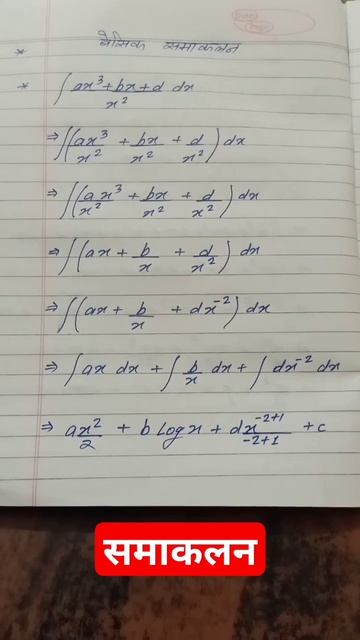 * बेसिक समाकलन
* ∫ ax³+bx+d/x² dx
⇒ ∫(ax³/x² + bx/x² + d/x²) dx
⇒ ∫(ax³/x² + bx/x² + d/x²) dx
⇒ ∫(ax + b/x + d/x²) dx
⇒ ∫(ax + b/x + dx⁻²) dx
⇒ ∫ax dx + ∫b/x dx + ∫dx⁻² dx
⇒ ax²/2 + b Log x + dx⁻²⁺¹/-2+1 + c
समाकलन